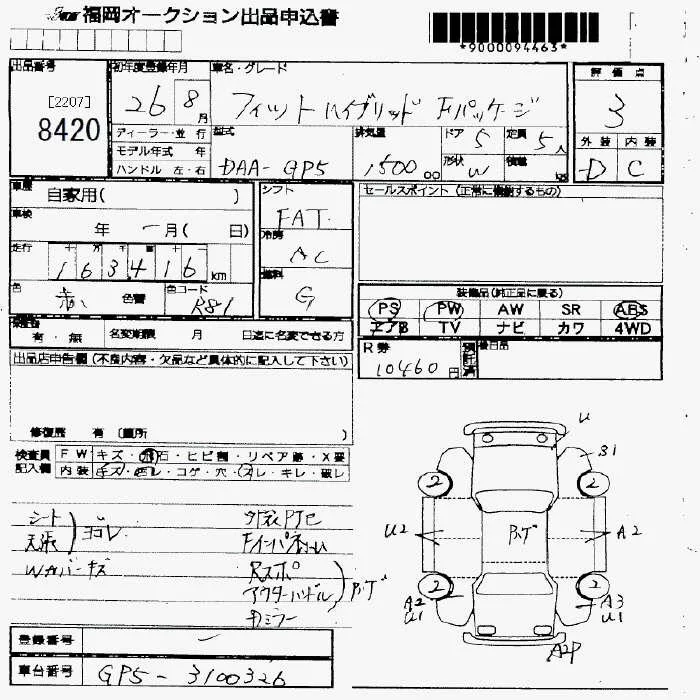 福岡オークション出品申込書
*9000094463*
出品番号
[2207]
8420
初年度登録年月
26 8月
車名・グレード
フィットハイブリッド Fパッケージ
評価点
3
外装 内装
D C
ディーラー・並行
モデル年式 年
ハンドル 左・右
型式
DAA-GP5
排気量
1,500 cc
ドア 5
形状 W
定員 5人
積載 kg
車歴 自家用( )
車検 年 ー月( 日)
走行 十 万 千 百 十
163416 km
色 赤 色替
色コード R81
シフト
FAT
冷房
AC
燃料
G
セールスポイント (正常に機能するもの)
装備品(純正品に戻る)
PS PW AW SR ABS
エアB TV ナビ カワ 4WD
有・無 名変期限 月 日迄に名変できる方
R券
10460円
預託済
後日品
出品店申告欄 (不良内容・欠品など具体的に記入して下さい)
修復歴 有 (箇所 )
検査員記入欄
FW キズ・飛石・ヒビ割・リペア跡・X要
内装 キズ・ヨゴレ・コゲ・穴・スレ・キレ・破レ
シート
天張
ヨゴレ
Wカバーキズ
Fインパネ
Rスポ
アウターハンドル
Dミラー
ハゲ
U
B1
2
2
U2
ハゲ
A2
2
2
A2
U1
A3
U1
A2P
登録番号 ー
車台番号 GP5-3100326